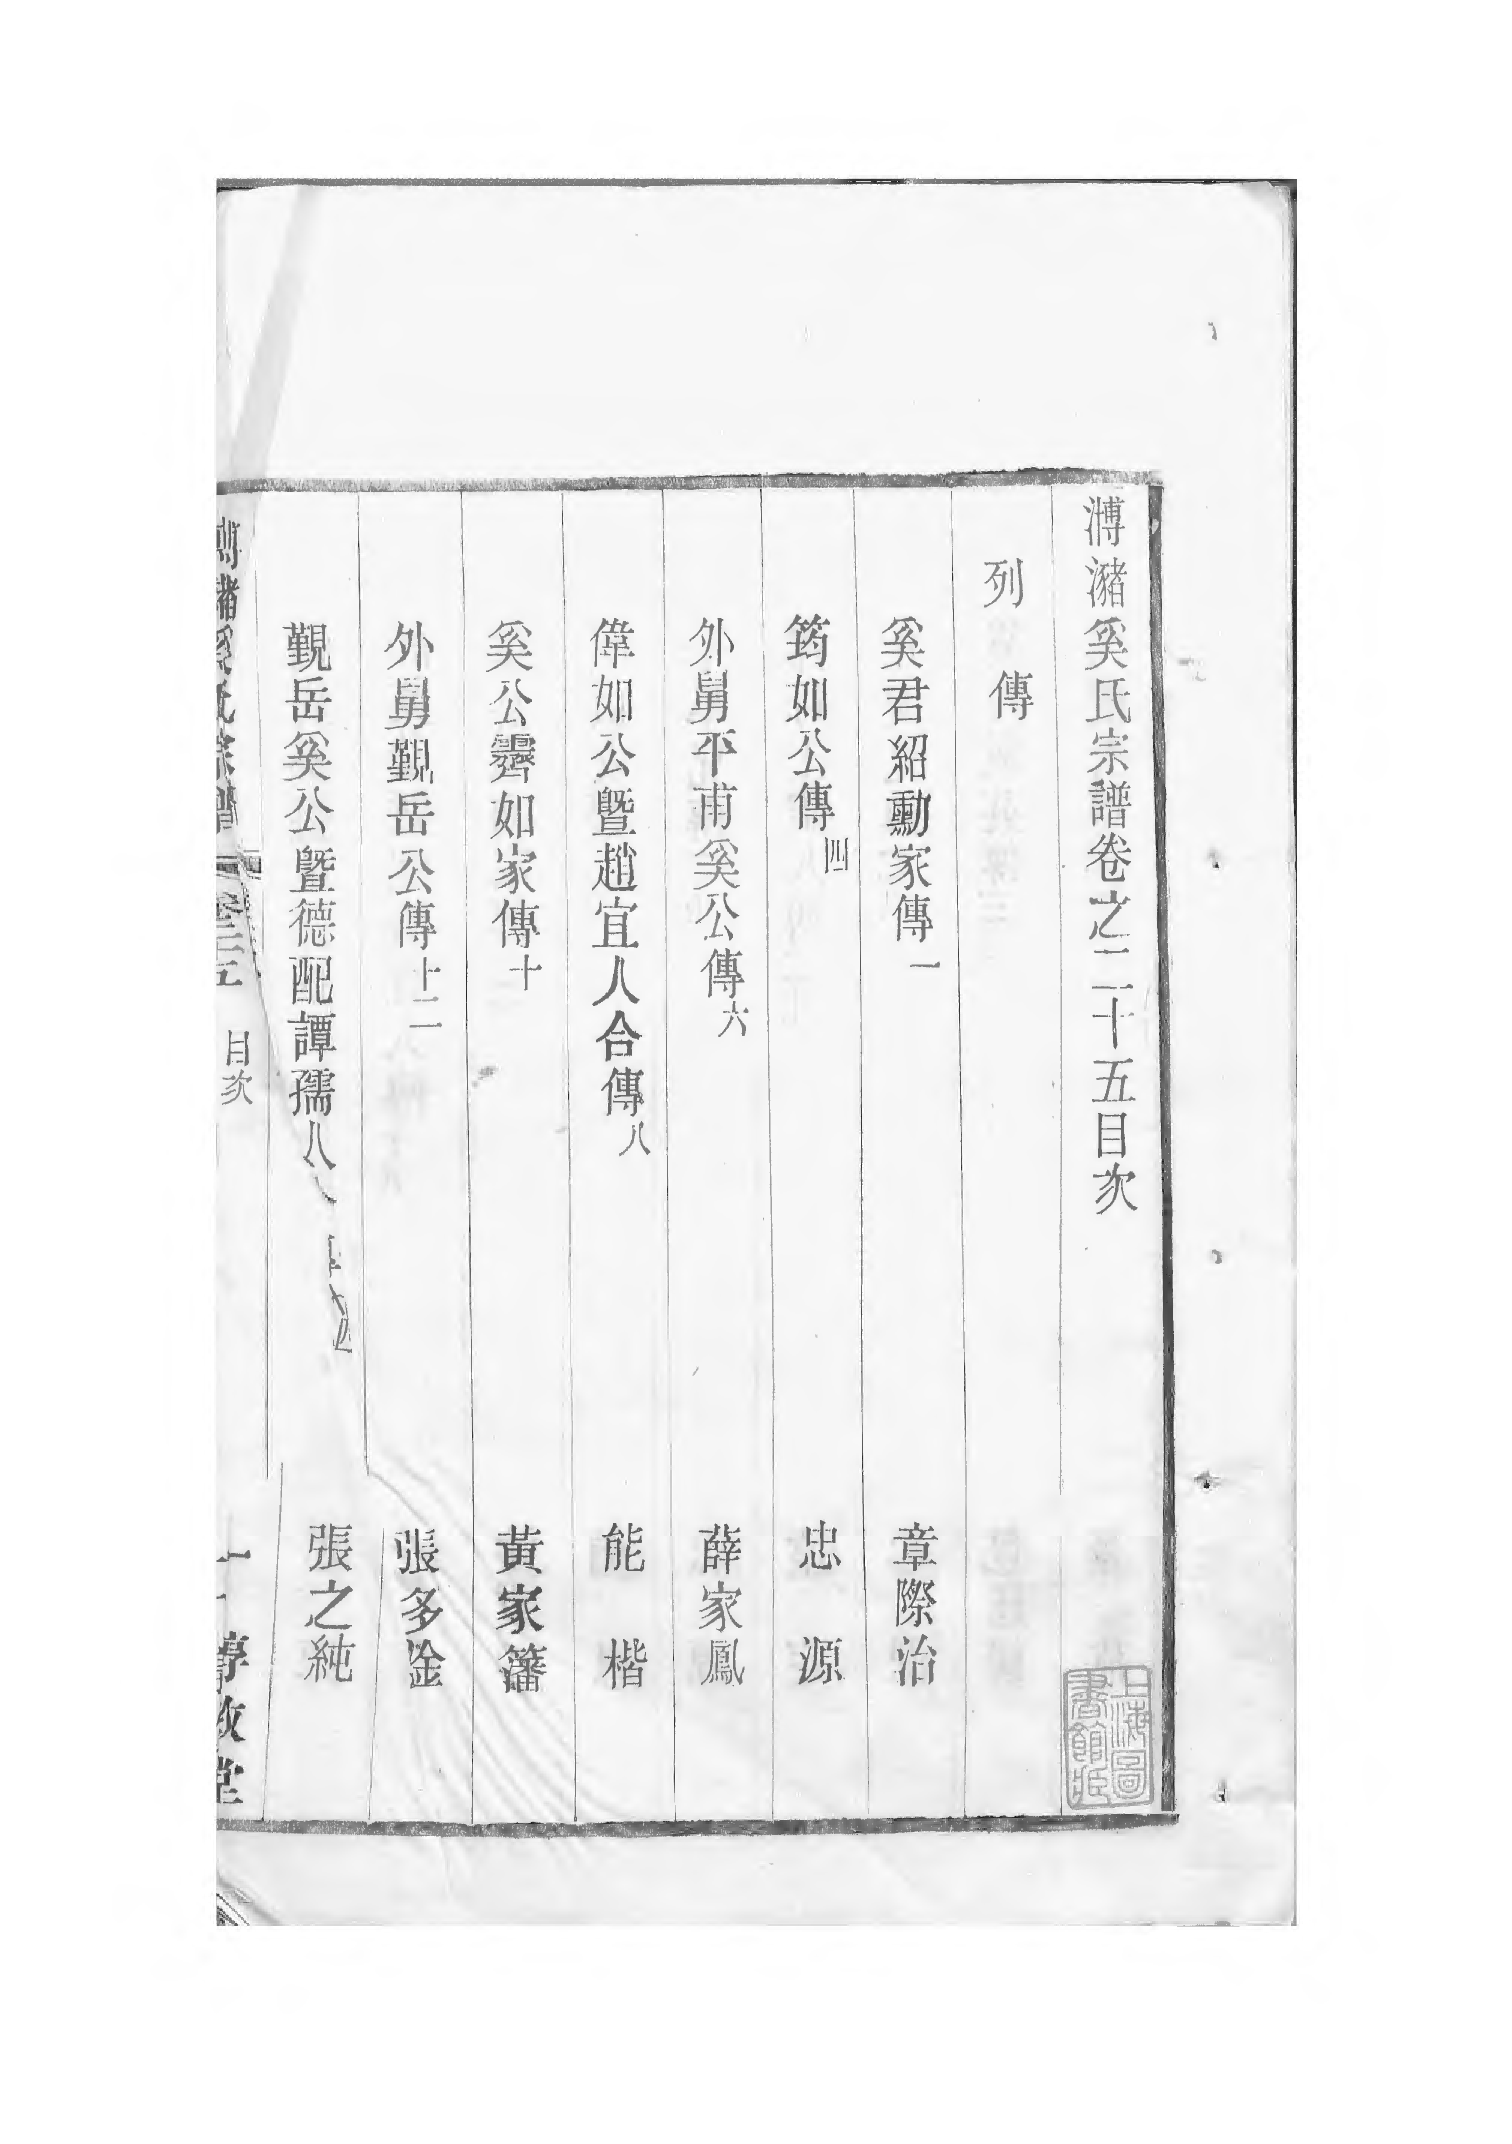 溥瀦奚氏宗譜卷之二十五目次
列傳
奚君紹勳家傳一 章際治
筠如公傳四 忠源
外舅平甫奚公傳六 薛家鳳
偉如公暨趙宜人合傳八 能楷
奚公霽如家傳十 黃家籓
外舅覲岳公傳十二 張多淦
覲岳奚公暨德配譚孺人 張之純
目次
上海圖書館藏